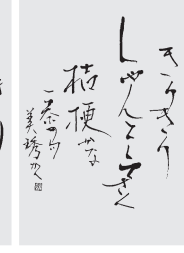 きりきり
しやんとしてさく
桔梗かな
一茶の句
美琇かく